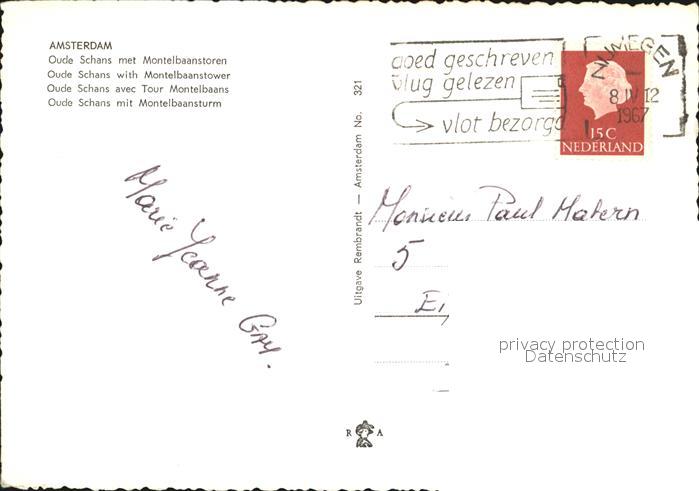 AMSTERDAM
Oude Schans met Montelbaanstoren
Oude Schans with Montelbaanstower
Oude Schans avec Tour Montelbaans
Oude Schans mit Montelbaansturm
goed geschreven
vlug gelezen
vlot bezorgd
NIJMEGEN
8 IV 12
1967
15C
NEDERLAND
Uitgave Rembrandt — Amsterdam No. 321
Marie Yeanne Gay.
Monsieur Paul Matern
5
Ei
privacy protection
Datenschutz
R A